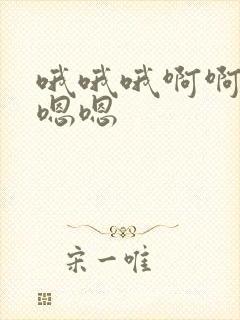 哦哦哦啊啊
嗯嗯
宋一唯